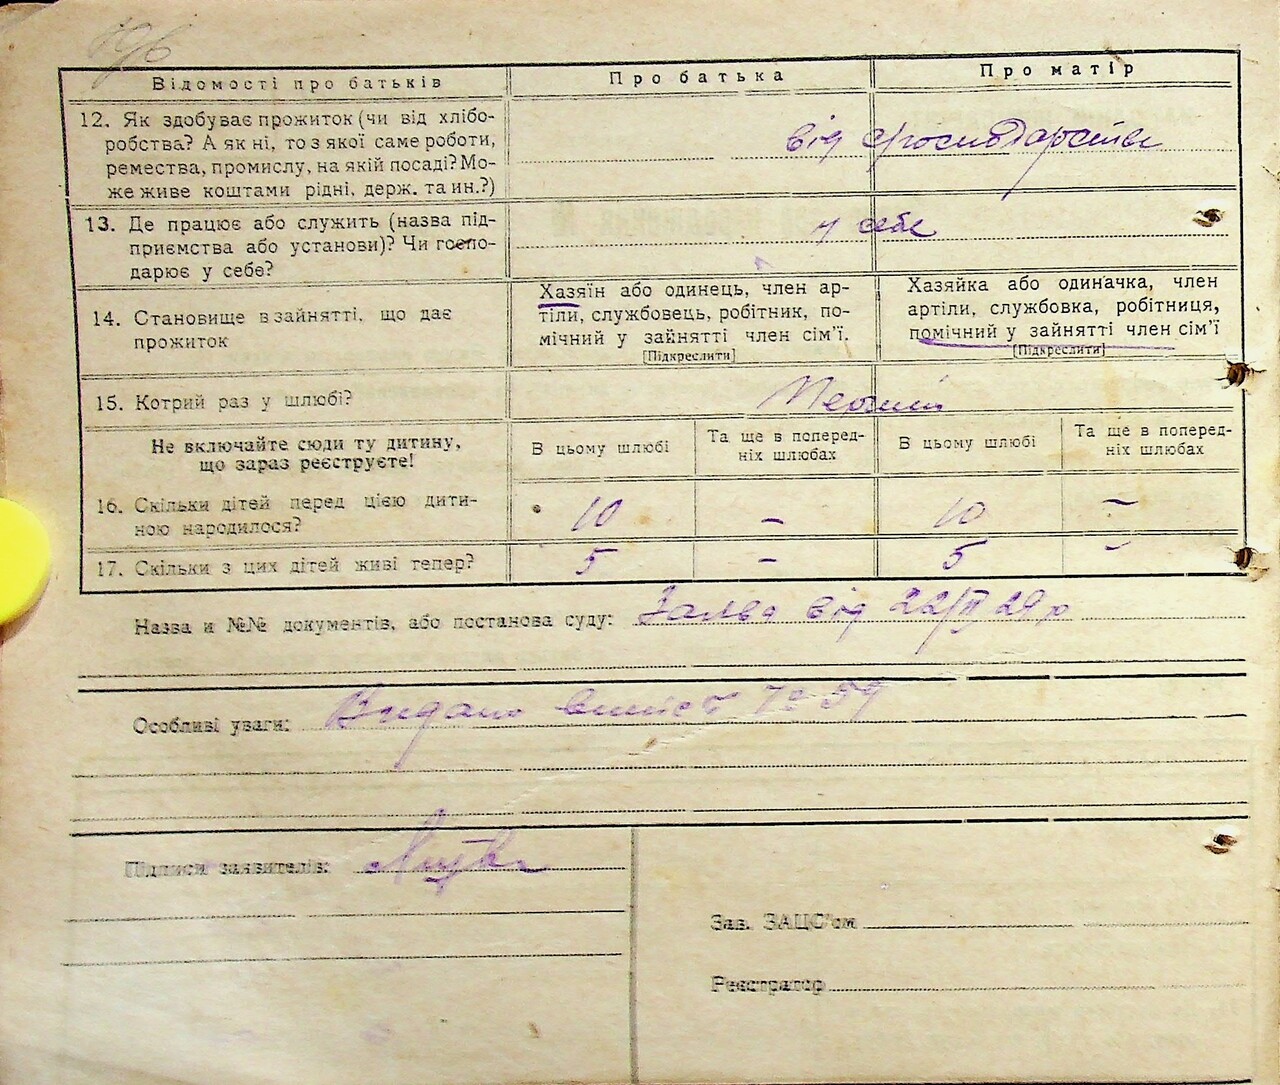 196
Відомості про батьків
Про батька
Про матір
12. Як здобуває прожиток (чи від хлібо-
робства? А як ні, то з якої саме роботи,
ремества, промислу, на якій посаді? Мо-
же живе коштами рідні, держ. та ин.?)
від господарства
13. Де працює або служить (назва під-
приємства або установи)? Чи госпо-
дарює у себе?
у себе
14. Становище в зайнятті, що дає
прожиток
Хазяїн або одинець, член ар-
тіли, службовець, робітник, по-
мічний у зайнятті член сім'ї.
[Підкреслити]
Хазяйка або одиначка, член
артіли, службовка, робітниця,
помічний у зайнятті член сім'ї
[Підкреслити]
15. Котрий раз у шлюбі?
Не включайте сюди ту дитину,
що зараз реєструєте!
В цьому шлюбі
Та ще в поперед-
ніх шлюбах
В цьому шлюбі
Та ще в поперед-
ніх шлюбах
16. Скільки дітей перед цією дити-
ною народилося?
10 - 10 -
17. Скільки з цих дітей живі тепер?
5 - 5 -
Назва и №№ документів, або постанова суду: Заява від 22/II 29 р
Особливі уваги: Видано № 59
Підписи заявителів:
Зав. ЗАЦС'ом
Реєстратор